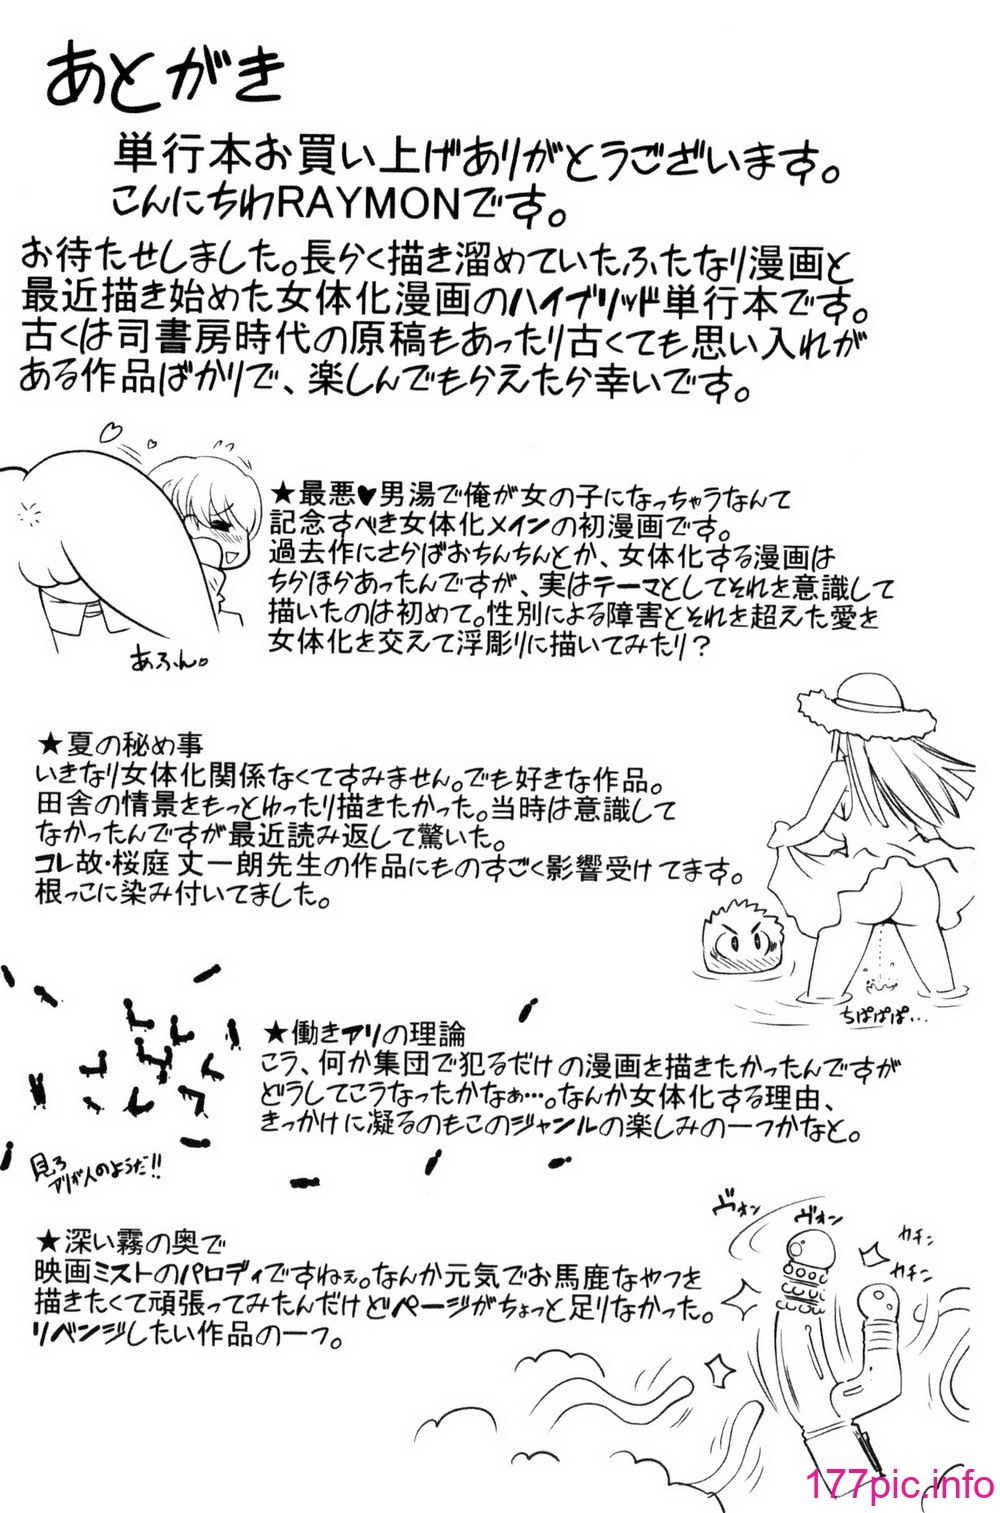 あとがき
単行本お買い上げありがとうございます。
こんにちわRAYMONです。
お待たせしました。長らく描き溜めていたふたなり漫画と
最近描き始めた女体化漫画のハイブリッド単行本です。
古くは司書房時代の原稿もあったり古くても思い入れが
ある作品ばかりで、楽しんでもらえたら幸いです。
★最悪♥男湯で俺が女の子になっちゃうなんて
記念すべき女体化メインの初漫画です。
過去作にさらばおちんちんとか、女体化する漫画は
ちらほらあったんですが、実はテーマとしてそれを意識して
描いたのは初めて。性別による障害とそれを超えた愛を
女体化を交えて浮彫りに描いてみたり？
あふん。
★夏の秘め事
いきなり女体化関係なくてすみません。でも好きな作品。
田舎の情景をもっとゆったり描きたかった。当時は意識して
なかったんですが最近読み返して驚いた。
コレ故・桜庭 丈一朗先生の作品にものすごく影響受けてます。
根っこに染み付いてました。
ちぱぱぱ…
★働きアリの理論
こう、何か集団で犯るだけの漫画を描きたかったんですが
どうしてこうなったかなぁ…。なんか女体化する理由、
きっかけに凝るのもこのジャンルの楽しみの一つかなと。
見ろ
アリが人のようだ!!
★深い霧の奥で
映画ミストのパロディですねぇ。なんか元気でお馬鹿なやつを
描きたくて頑張ってみたんだけどページがちょっと足りなかった。
リベンジしたい作品の一つ。
ヴォン
ヴォン
カチン
カチン
177pic.info